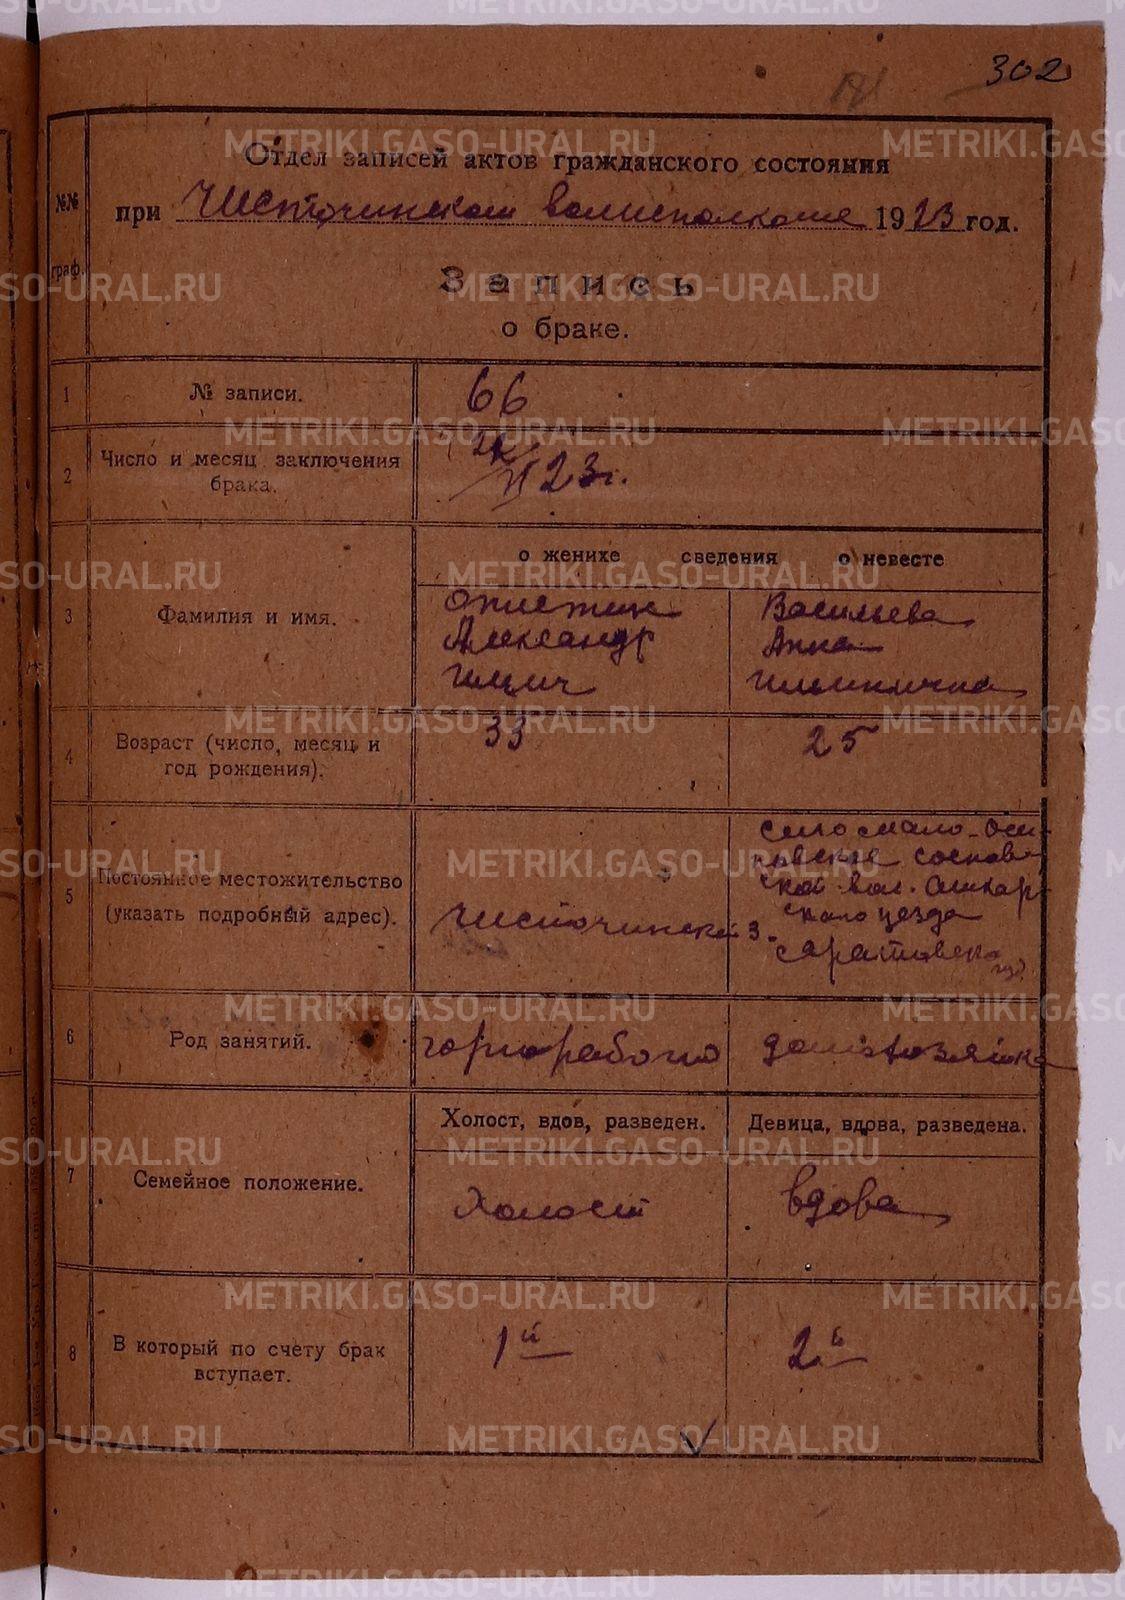 302
Отдел записей актов гражданского состояния
№№ граф.
при Чисточинском волисполкоме 1923 год.
Запись
о браке.
1 № записи. 66
2 Число и месяц заключения брака. VI 23 г.
о женихе сведения о невесте
3 Фамилия и имя.
Александр
Васильева
Анна
Ильинична
4 Возраст (число, месяц и год рождения). 33 25
5 Постоянное местожительство (указать подробный адрес).
Чисточинск з.
село Мало-
кой вол.
ского уезда
Саратовск
губ
6 Род занятий. горнорабочий домохозяйка
Холост, вдов, разведен. Девица, вдова, разведена.
7 Семейное положение. Холост вдова
8 В который по счету брак вступает. 1й 2й
METRIKI.GASO-URAL.RU